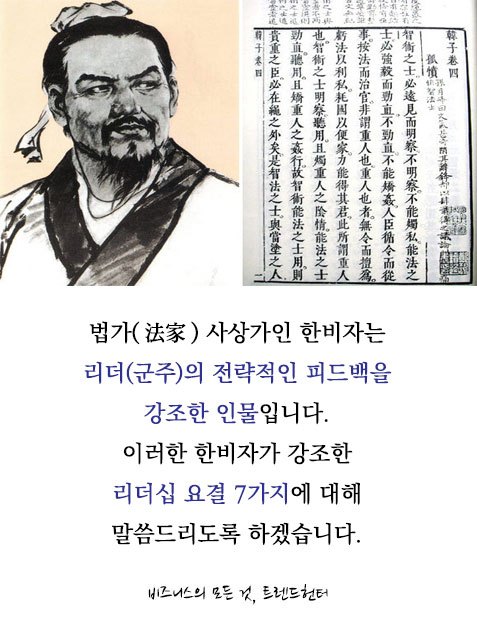 韓子卷四
孤憤
智術之士必遠見而明察。不明察。不能燭私。能法之
士。必強毅而勁直。不勁直。不能矯姦。人臣循令而從
事。按法而治官。非謂重人也。重人也者。無令而擅為。
虧法以利私。耗國以便家。力能得其君。此所謂重人
也。智術之士。明察聽用。且燭重人之陰情。能法之士。
勁直聽用。且矯重人之姦行。故智術能法之士用。則
貴重之臣。必在繩之外矣。是智法之士。與當塗之人
韓子卷四 二
법가( 法家 ) 사상가인 한비자는
리더(군주)의 전략적인 피드백을
강조한 인물입니다.
이러한 한비자가 강조한
리더십 요결 7가지에 대해
말씀드리도록 하겠습니다.
비즈니스의 모든 것, 트렌드헌터